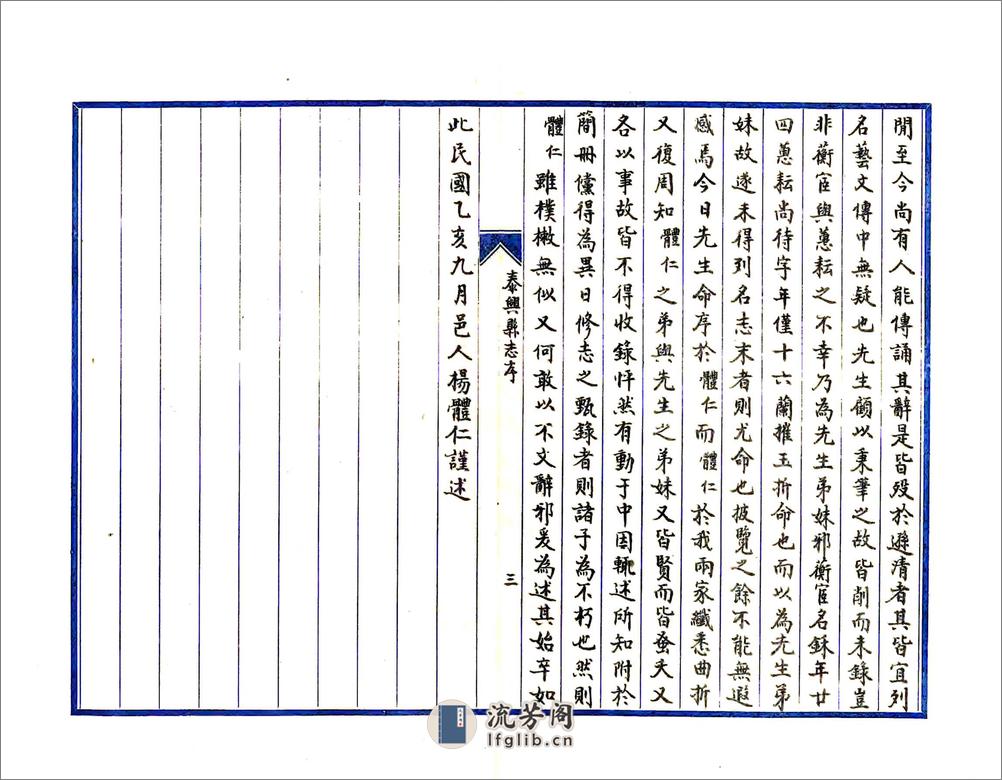 閒至今尚有人能傳誦其辭是皆歿於遜清者其皆宜列
名藝文傳中無疑也先生顧以秉筆之故皆削而未錄豈
非蘅宧與蕙耘之不幸乃為先生弟妹邪蘅宧名稣年廿
四蕙耘尚待字年僅十六蘭摧玉折命也而以為先生弟
妹故遂未得到名志末者則尤命也披覽之餘不能無遐
感焉今日先生命序於體仁而體仁於我兩家纖悉曲折
又復周知體仁之弟與先生之弟妹又皆賢而皆蚤夭又
各以事故皆不得收錄怦然有動于中因輒述所知附於
簡冊儻得為異日修志之甄錄者則諸子為不朽也然則
體仁雖樸樕無似又何敢以不文辭邪爰為述其始卒如
泰興縣志序
三
此民國乙亥九月邑人楊體仁謹述
流芳阁
lfglib.cn